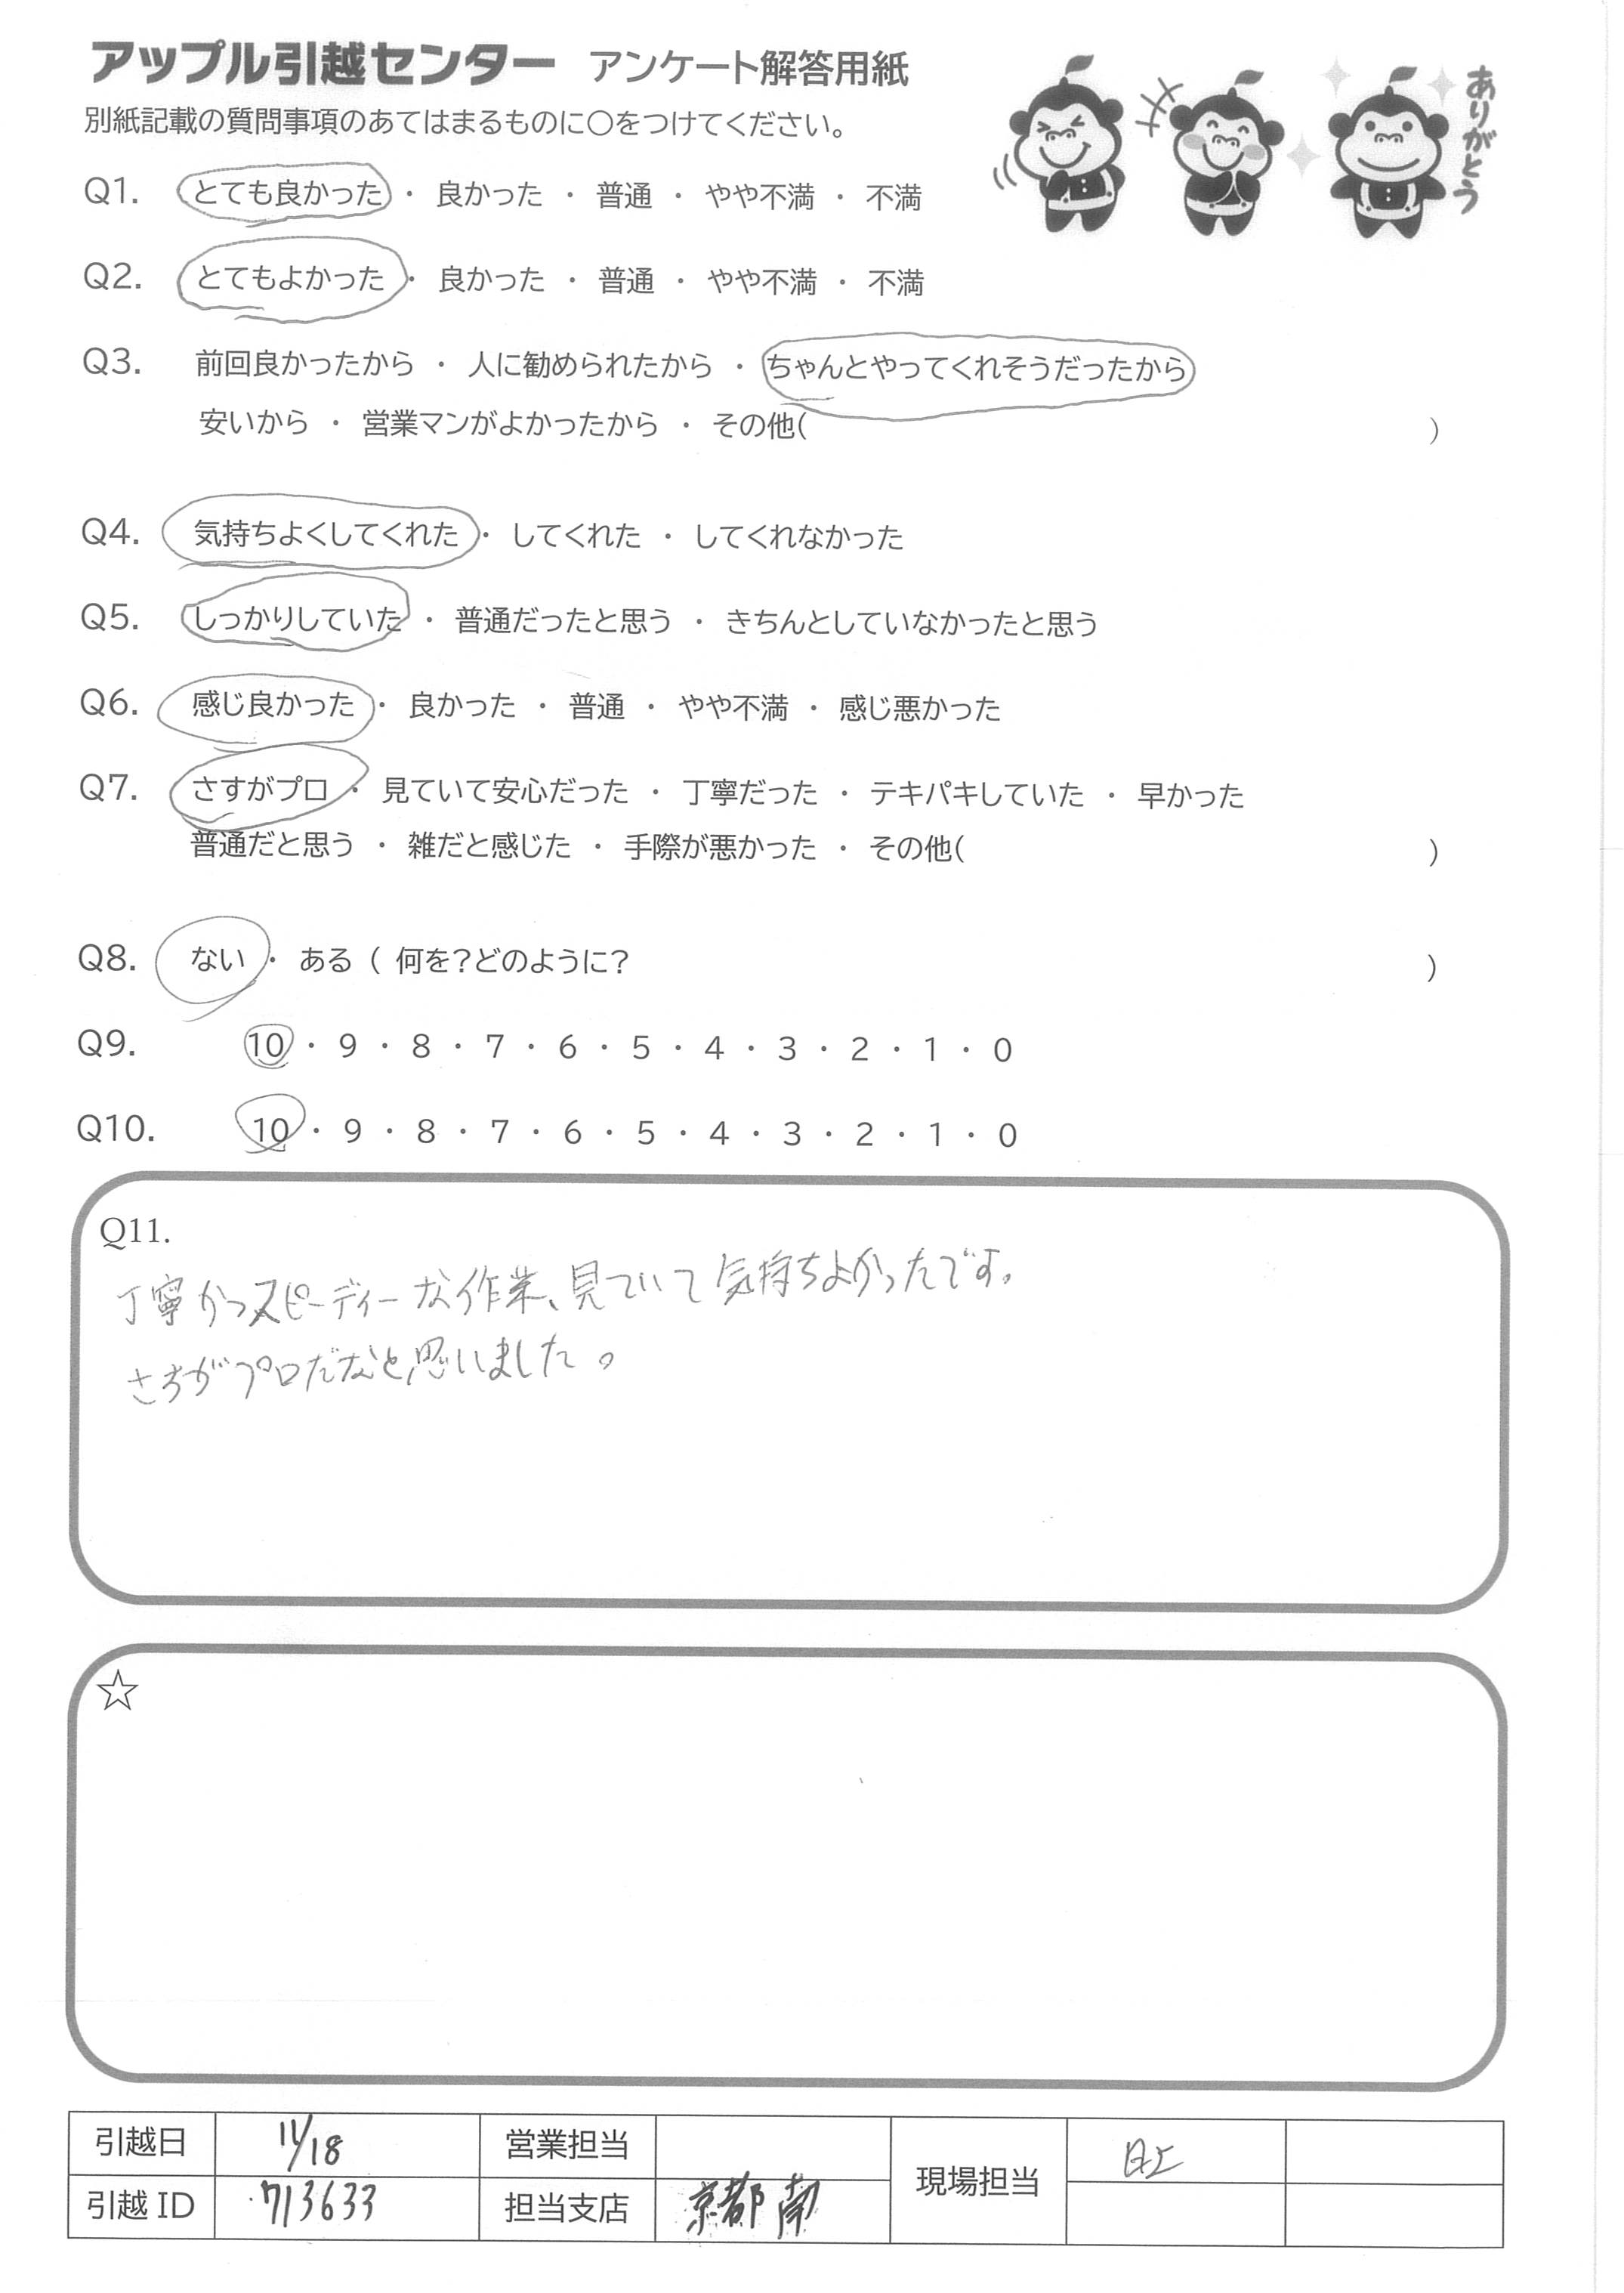 アップル引越センター アンケート解答用紙
別紙記載の質問事項のあてはまるものに○をつけてください。
ありがとう
Q1. とても良かった ・ 良かった ・ 普通 ・ やや不満 ・ 不満
Q2. とてもよかった ・ 良かった ・ 普通 ・ やや不満 ・ 不満
Q3. 前回良かったから ・ 人に勧められたから ・ ちゃんとやってくれそうだったから
安いから ・ 営業マンがよかったから ・ その他( )
Q4. 気持ちよくしてくれた ・ してくれた ・ してくれなかった
Q5. しっかりしていた ・ 普通だったと思う ・ きちんとしていなかったと思う
Q6. 感じ良かった ・ 良かった ・ 普通 ・ やや不満 ・ 感じ悪かった
Q7. さすがプロ ・ 見ていて安心だった ・ 丁寧だった ・ テキパキしていた ・ 早かった
普通だと思う ・ 雑だと感じた ・ 手際が悪かった ・ その他( )
Q8. ない ・ ある ( 何を?どのように? )
Q9. 10 ・ 9 ・ 8 ・ 7 ・ 6 ・ 5 ・ 4 ・ 3 ・ 2 ・ 1 ・ 0
Q10. 10 ・ 9 ・ 8 ・ 7 ・ 6 ・ 5 ・ 4 ・ 3 ・ 2 ・ 1 ・ 0
Q11.
丁寧かつスピーディーな作業、見ていて気持ちよかったです。
さすがプロだなと思いました。
☆
引越日 11/18 営業担当 現場担当
引越ID 713633 担当支店 京都南